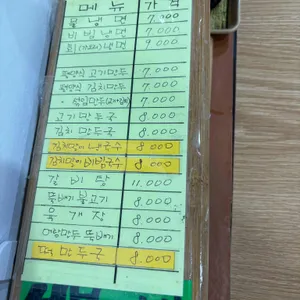 메뉴 가격
물냉면 7.000
비빔냉면 7.000
회(가오리)냉면 9.000
평양식 고기만두 7.000
평양식 김치만두 7.000
섞임만두 7.000
고기만두국 8.000
김치만두국 8.000
김치말이 냉국수 8.000
김치말이 비빔국수 8.000
갈비탕 11.000
뚝배기불고기 8.000
육개장 8.000
8.000
떡만두국 8.000